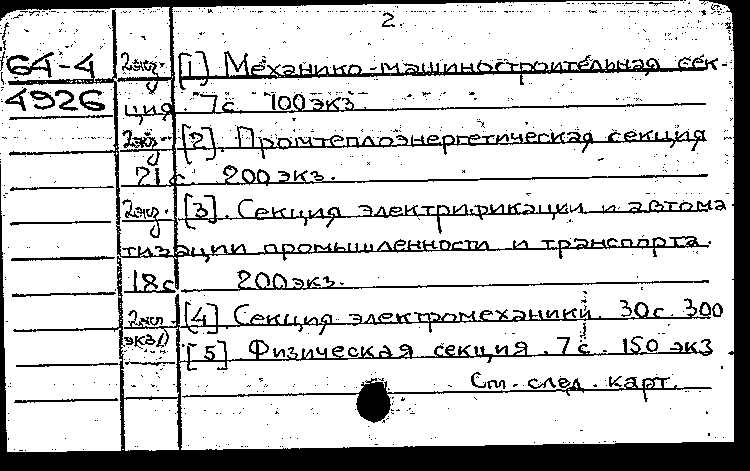 2.
64-4 2экз. [1] Механико-машиностроительная сек-
4926 ция. 7с. 100 экз.
2экз. [2]. Промтеплоэнергетическая секция
21с. 200 экз.
2экз. [3]. Секция электрификации и автома-
тизации промышленности и транспорта.
18с. 200 экз.
2экз. [4]. Секция электромеханики. 30с. 300
экз.
[5]. Физическая секция. 7с. 150 экз.
См. след. карт.